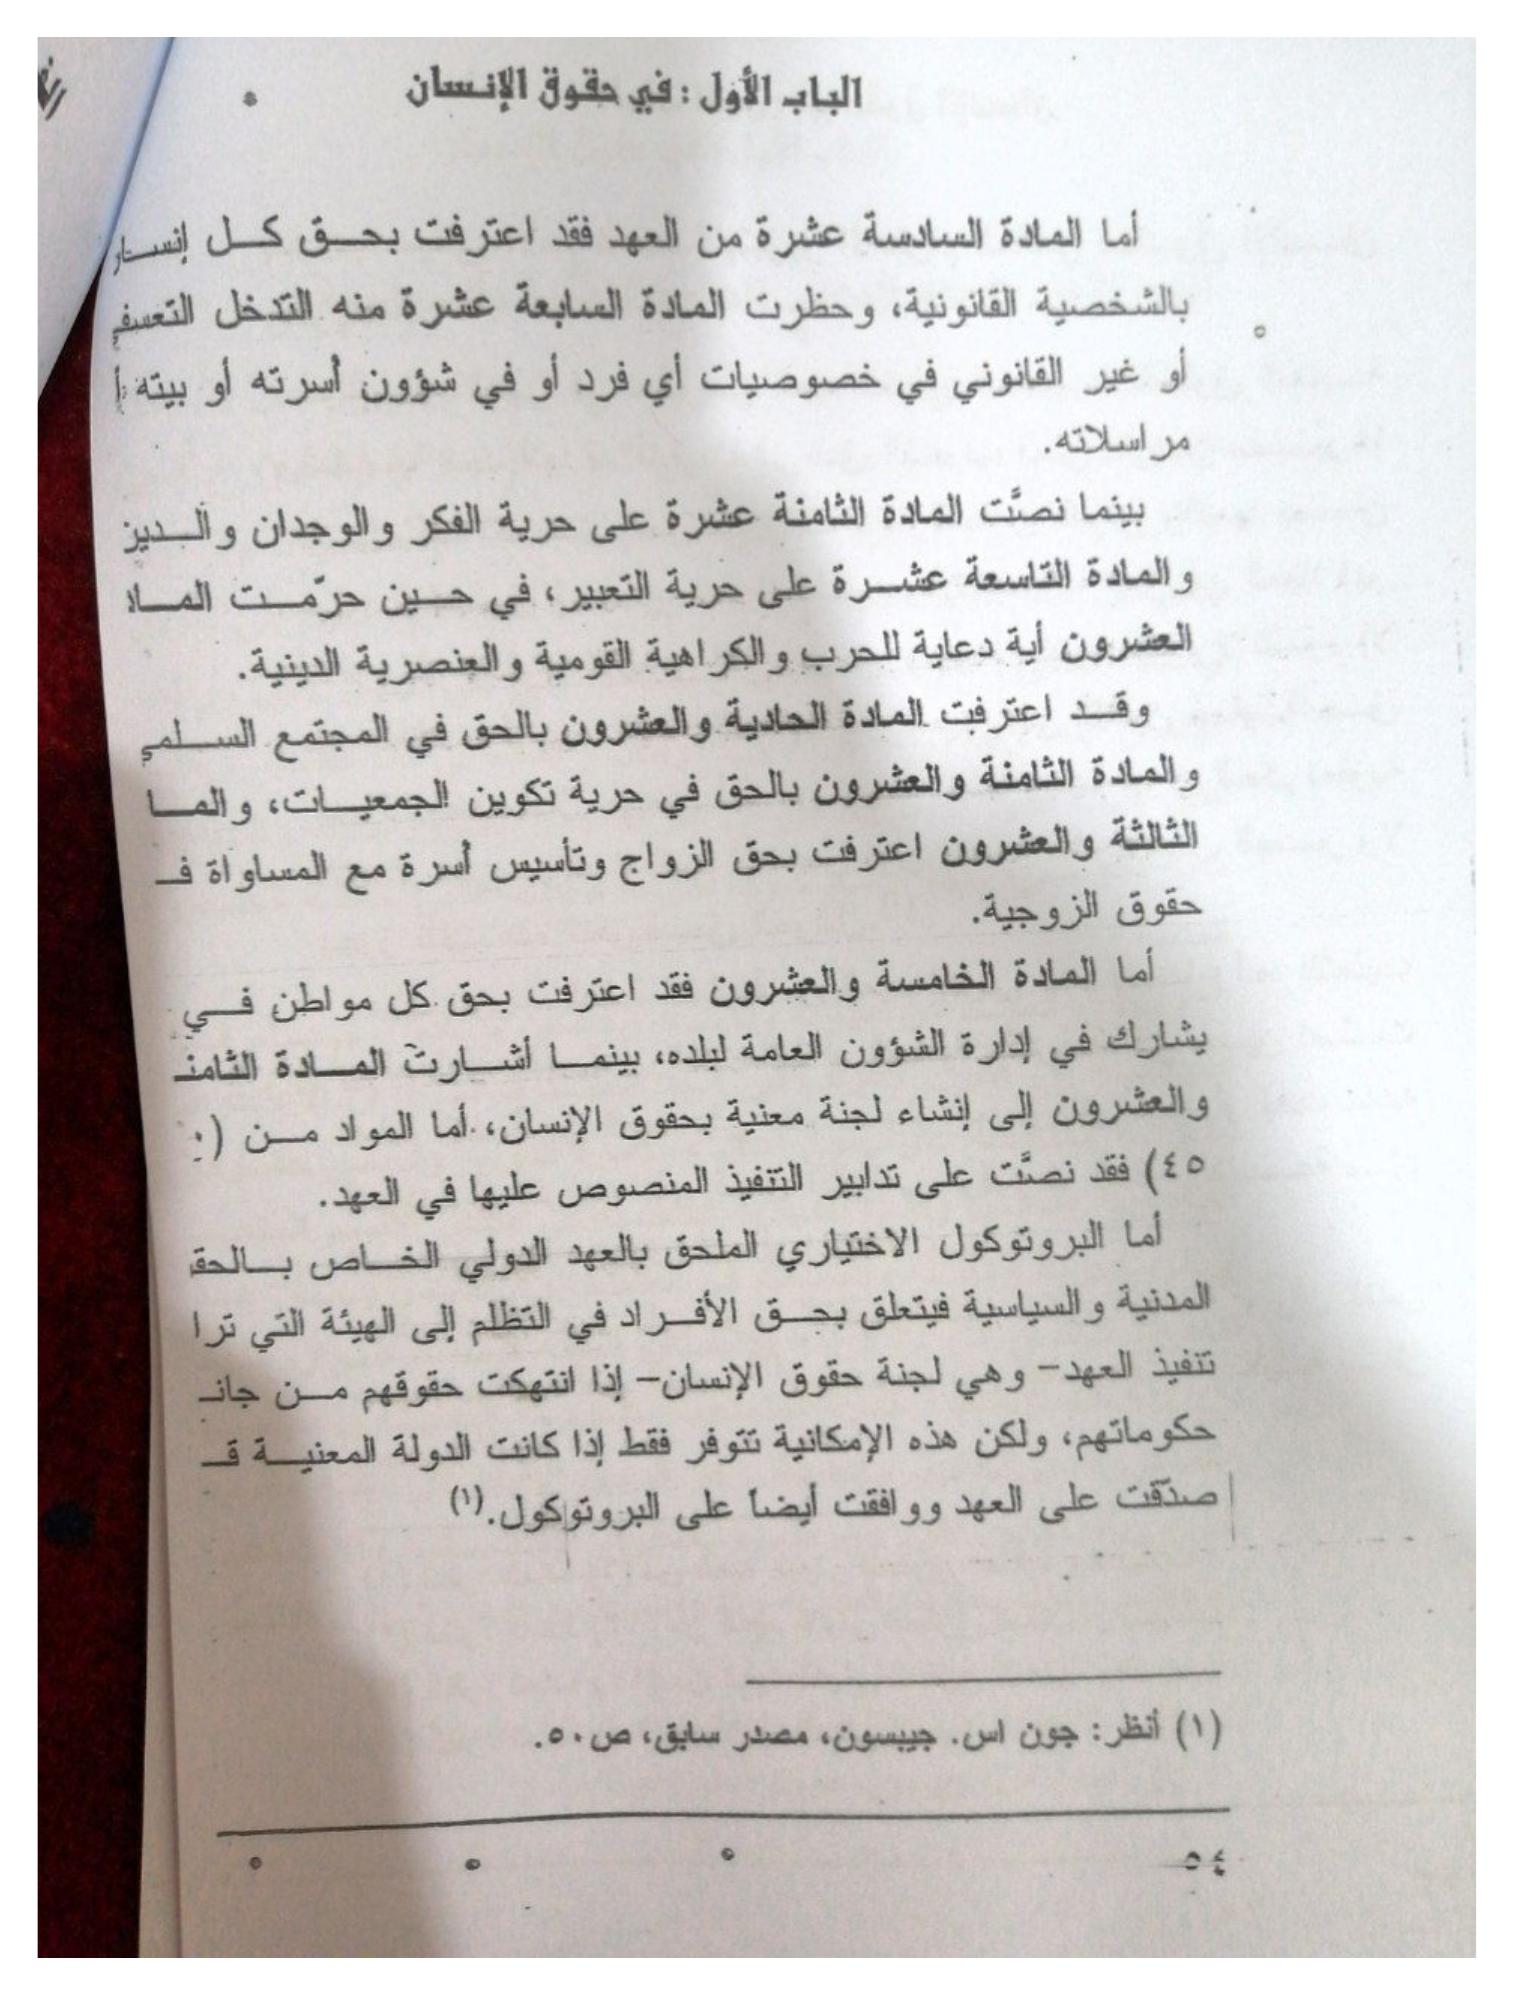 الباب الأول : في حقوق الإنسان
أما المادة السادسة عشرة من العهد فقد اعترفت بحق كل
بالشخصية القانونية، وحظرت المادة السابعة عشرة منه التدخل
أو غير القانوني في خصوصيات أي فرد أو في شؤون أسرته أو بيته
مراسلاته.
بينما نصَّت المادة الثامنة عشرة على حرية الفكر والوجدان
والمادة التاسعة عشرة على حرية التعبير، في حين حرّمت
العشرون أية دعاية للحرب والكراهية القومية والعنصرية الدينية.
وقد اعترفت المادة الحادية والعشرون بالحق في المجتمع
والمادة الثامنة والعشرون بالحق في حرية تكوين الجمعيات،
الثالثة والعشرون اعترفت بحق الزواج وتأسيس أسرة مع المساواة
حقوق الزوجية.
أما المادة الخامسة والعشرون فقد اعترفت بحق كل مواطن في
يشارك في إدارة الشؤون العامة لبلده، بينما أشارت المادة
والعشرون إلى إنشاء لجنة معنية بحقوق الإنسان، أما المواد من
٤٥) فقد نصَّت على تدابير التنفيذ المنصوص عليها في العهد.
أما البروتوكول الاختياري الملحق بالعهد الدولي الخاص
المدنية والسياسية فيتعلق بحق الأفراد في التظلم إلى الهيئة التي
تنفيذ العهد– وهي لجنة حقوق الإنسان– إذا انتهكت حقوقهم من
حكوماتهم، ولكن هذه الإمكانية تتوفر فقط إذا كانت الدولة المعنية
صدّقت على العهد ووافقت أيضاً على البروتوكول.(١)
(١) أنظر: جون اس. جيبسون، مصدر سابق، ص٥٠.
٥٤